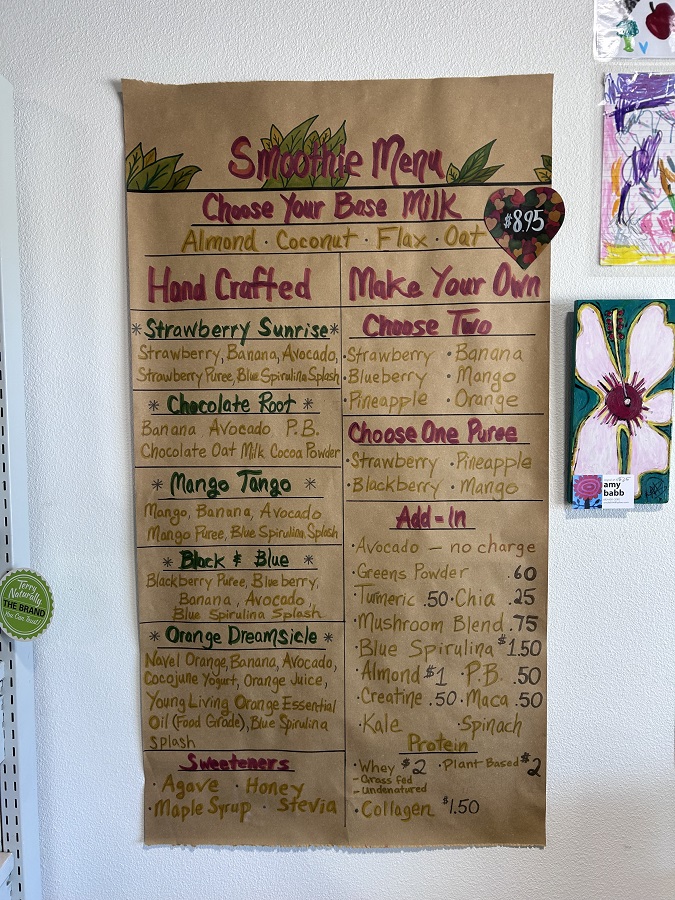 Smoothie Menu
Choose Your Base Milk
$8.95
Almond · Coconut · Flax · Oat
Hand Crafted
*Strawberry Sunrise*
Strawberry, Banana, Avocado,
Strawberry Puree, Blue Spirulina Splash
* Chocolate Root *
Banana Avocado P.B.
Chocolate Oat Milk Cocoa Powder
* Mango Tango *
Mango, Banana, Avocado
Mango Puree, Blue Spirulina, Splash
* Black & Blue *
Blackberry Puree, Blueberry,
Banana, Avocado,
Blue Spirulina Splash
* Orange Dreamsicle *
Navel Orange, Banana, Avocado,
Cocojune Yogurt, Orange Juice,
Young Living Orange Essential
Oil (Food Grade), Blue Spirulina
Splash
Sweeteners
· Agave · Honey
· Maple Syrup · Stevia
Make Your Own
Choose Two
· Strawberry · Banana
· Blueberry · Mango
· Pineapple · Orange
Choose One Puree
· Strawberry · Pineapple
· Blackberry · Mango
Add-In
· Avocado - no charge
· Greens Powder .60
· Tumeric .50 · Chia .25
· Mushroom Blend .75
· Blue Spirulina $1.50
· Almond $1 · P.B. .50
· Creatine .50 · Maca .50
· Kale · Spinach
Protein
· Whey $2 · Plant Based $2
- Grass fed
- Undenatured
· Collagen $1.50
Terry
Naturally
THE BRAND
You Can Trust!
amy
babb